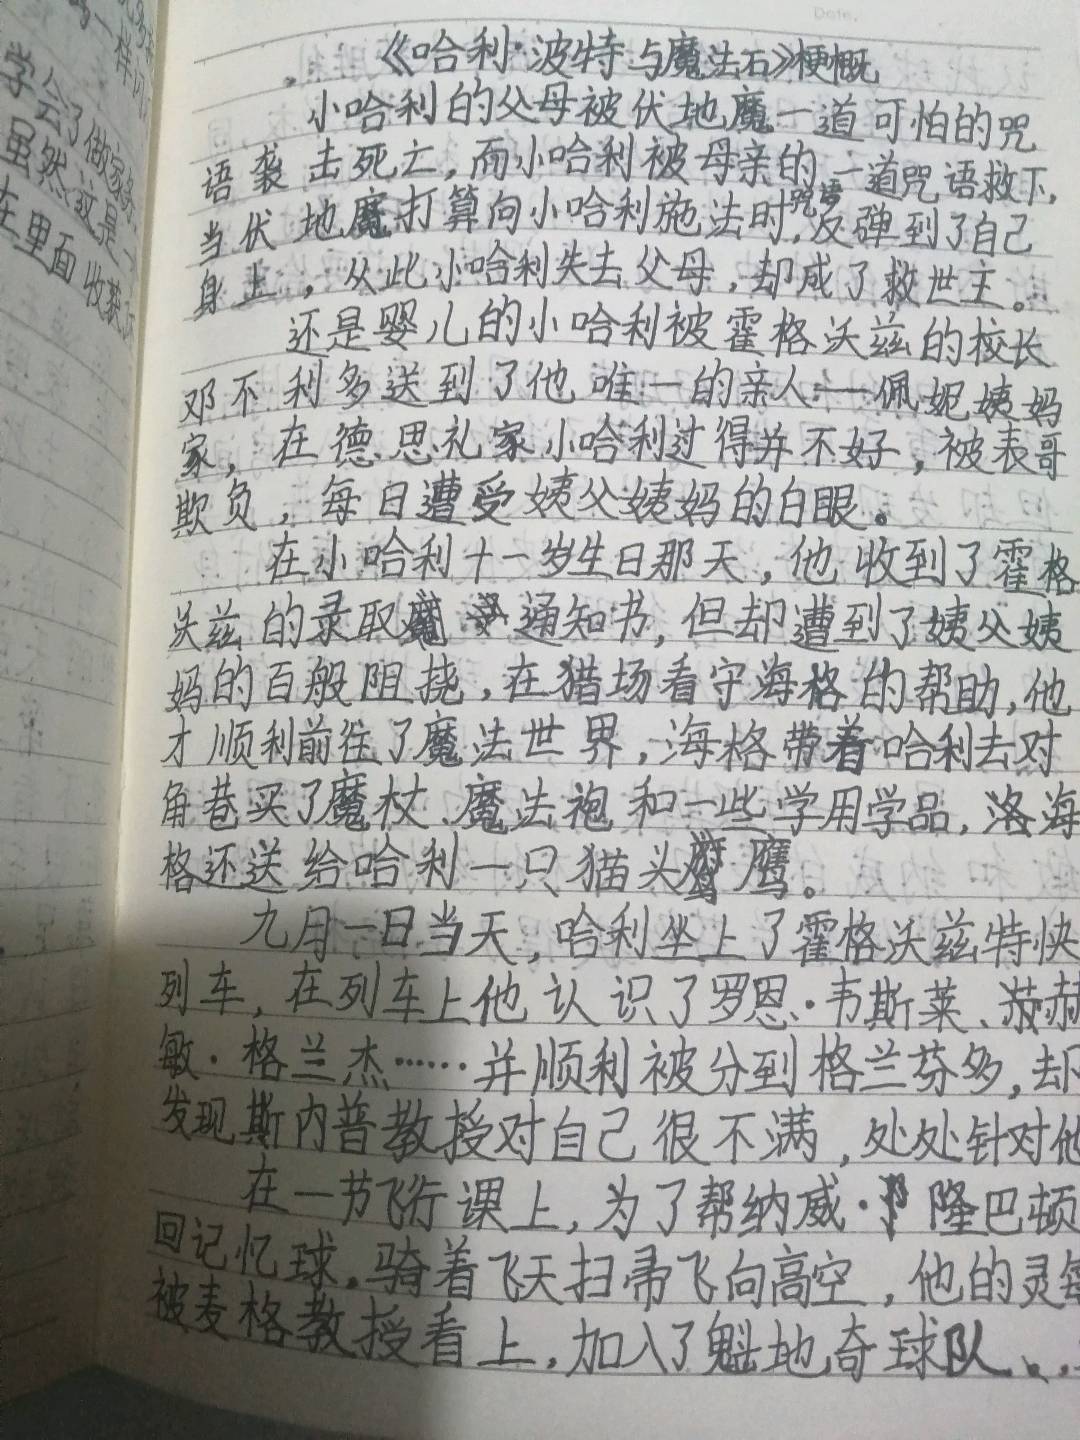 《哈利·波特与魔法石》梗概
小哈利的父母被伏地魔一道可怕的咒
语袭击死亡,而小哈利被母亲的一道咒语救下,
当伏地魔打算向小哈利施法时,咒语反弹到了自己
身上,从此小哈利失去父母,却成了救世主。
还是婴儿的小哈利被霍格沃兹的校长
邓不利多送到了他唯一的亲人——佩妮姨妈
家,在德思礼家小哈利过得并不好,被表哥
欺负,每日遭受姨父姨妈的白眼。
在小哈利十一岁生日那天,他收到了霍格
沃兹的录取通知书,但却遭到了姨父姨
妈的百般阻挠,在猎场看守海格的帮助,他
才顺利前往了魔法世界,海格带着哈利去对
角巷买了魔杖、魔法袍和一些学用学品,海
格还送给哈利一只猫头鹰。
九月一日当天,哈利坐上了霍格沃兹特快
列车,在列车上他认识了罗恩·韦斯莱、赫
敏·格兰杰……并顺利被分到格兰芬多,却
发现斯内普教授对自己很不满,处处针对他
在一节飞行课上,为了帮纳威·隆巴顿
回记忆球,骑着飞天扫帚飞向高空,他的灵敏
被麦格教授看上,加入了魁地奇球队。
学会了做家务
虽然这是一
在里面收获
一样